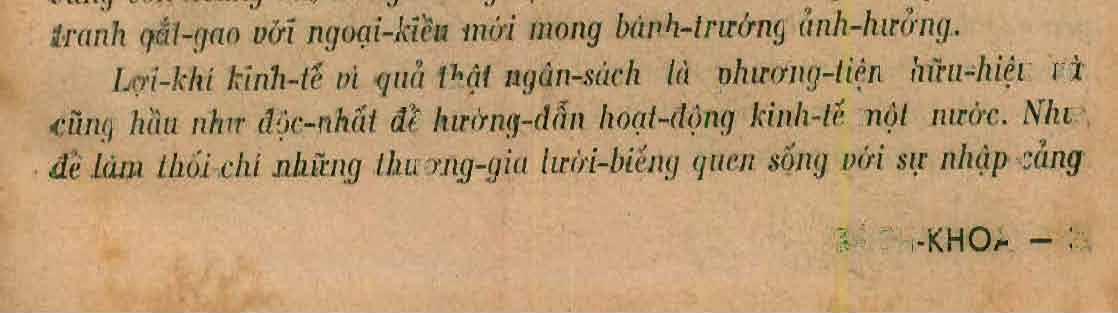 tranh gắt-gao với ngoại-kiều mới mong bành-trướng ảnh-hưởng.
Lợi-khí kinh-tế vì quả thật ngân-sách là phương-tiện hữu-hiệu và
cũng hầu như độc-nhất để hướng-dẫn hoạt-động kinh-tế một nước. Như
để làm thối chí những thương-gia lười-biếng quen sống với sự nhập cảng
BÁCH-KHOA —